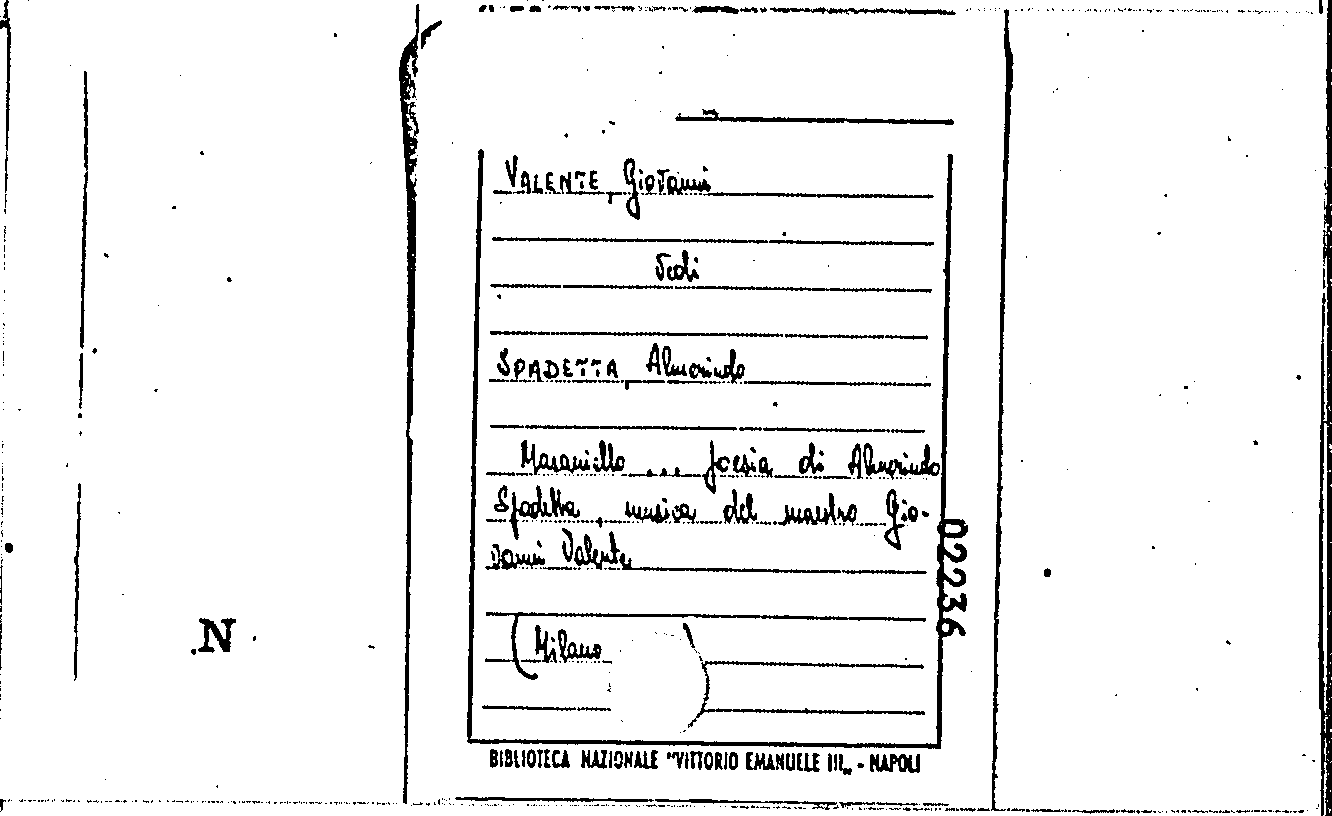 VALENTE, Giovanni
Vedi
SPADETTA, Almorindo
Masaniello ... poesia di Almorindo
Spadetta, musica del maestro Gio-
vanni Valente
(Milano )
02236
N
BIBLIOTECA NAZIONALE "VITTORIO EMANUELE III„ - NAPOLI